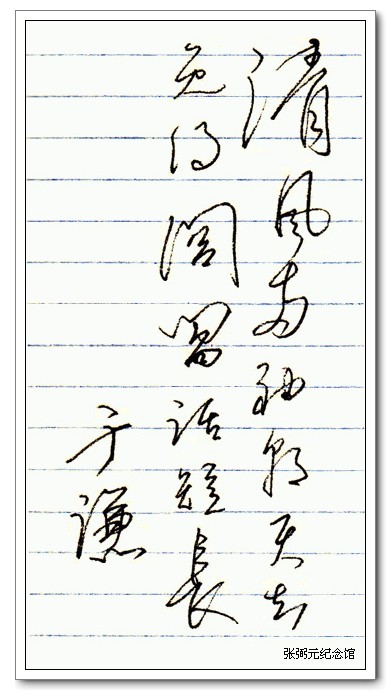 清风两袖朝天去
免得闾阎话短长
于谦
张弼元纪念馆